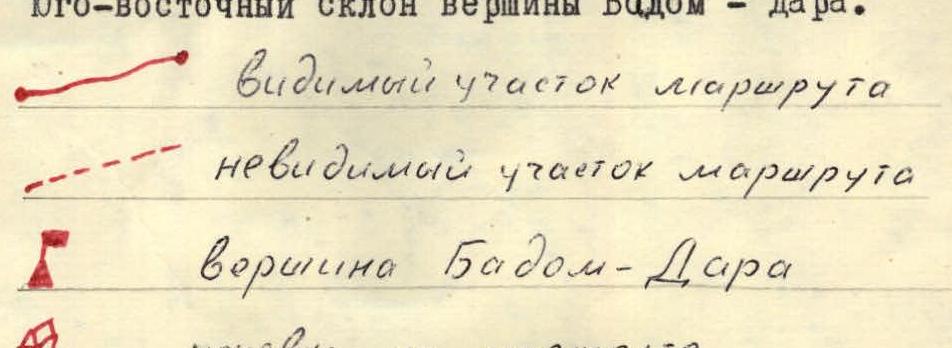 Юго-восточный склон вершины Бадом - Дара.
видимый участок маршрута
невидимый участок маршрута
вершина Бадом-Дара